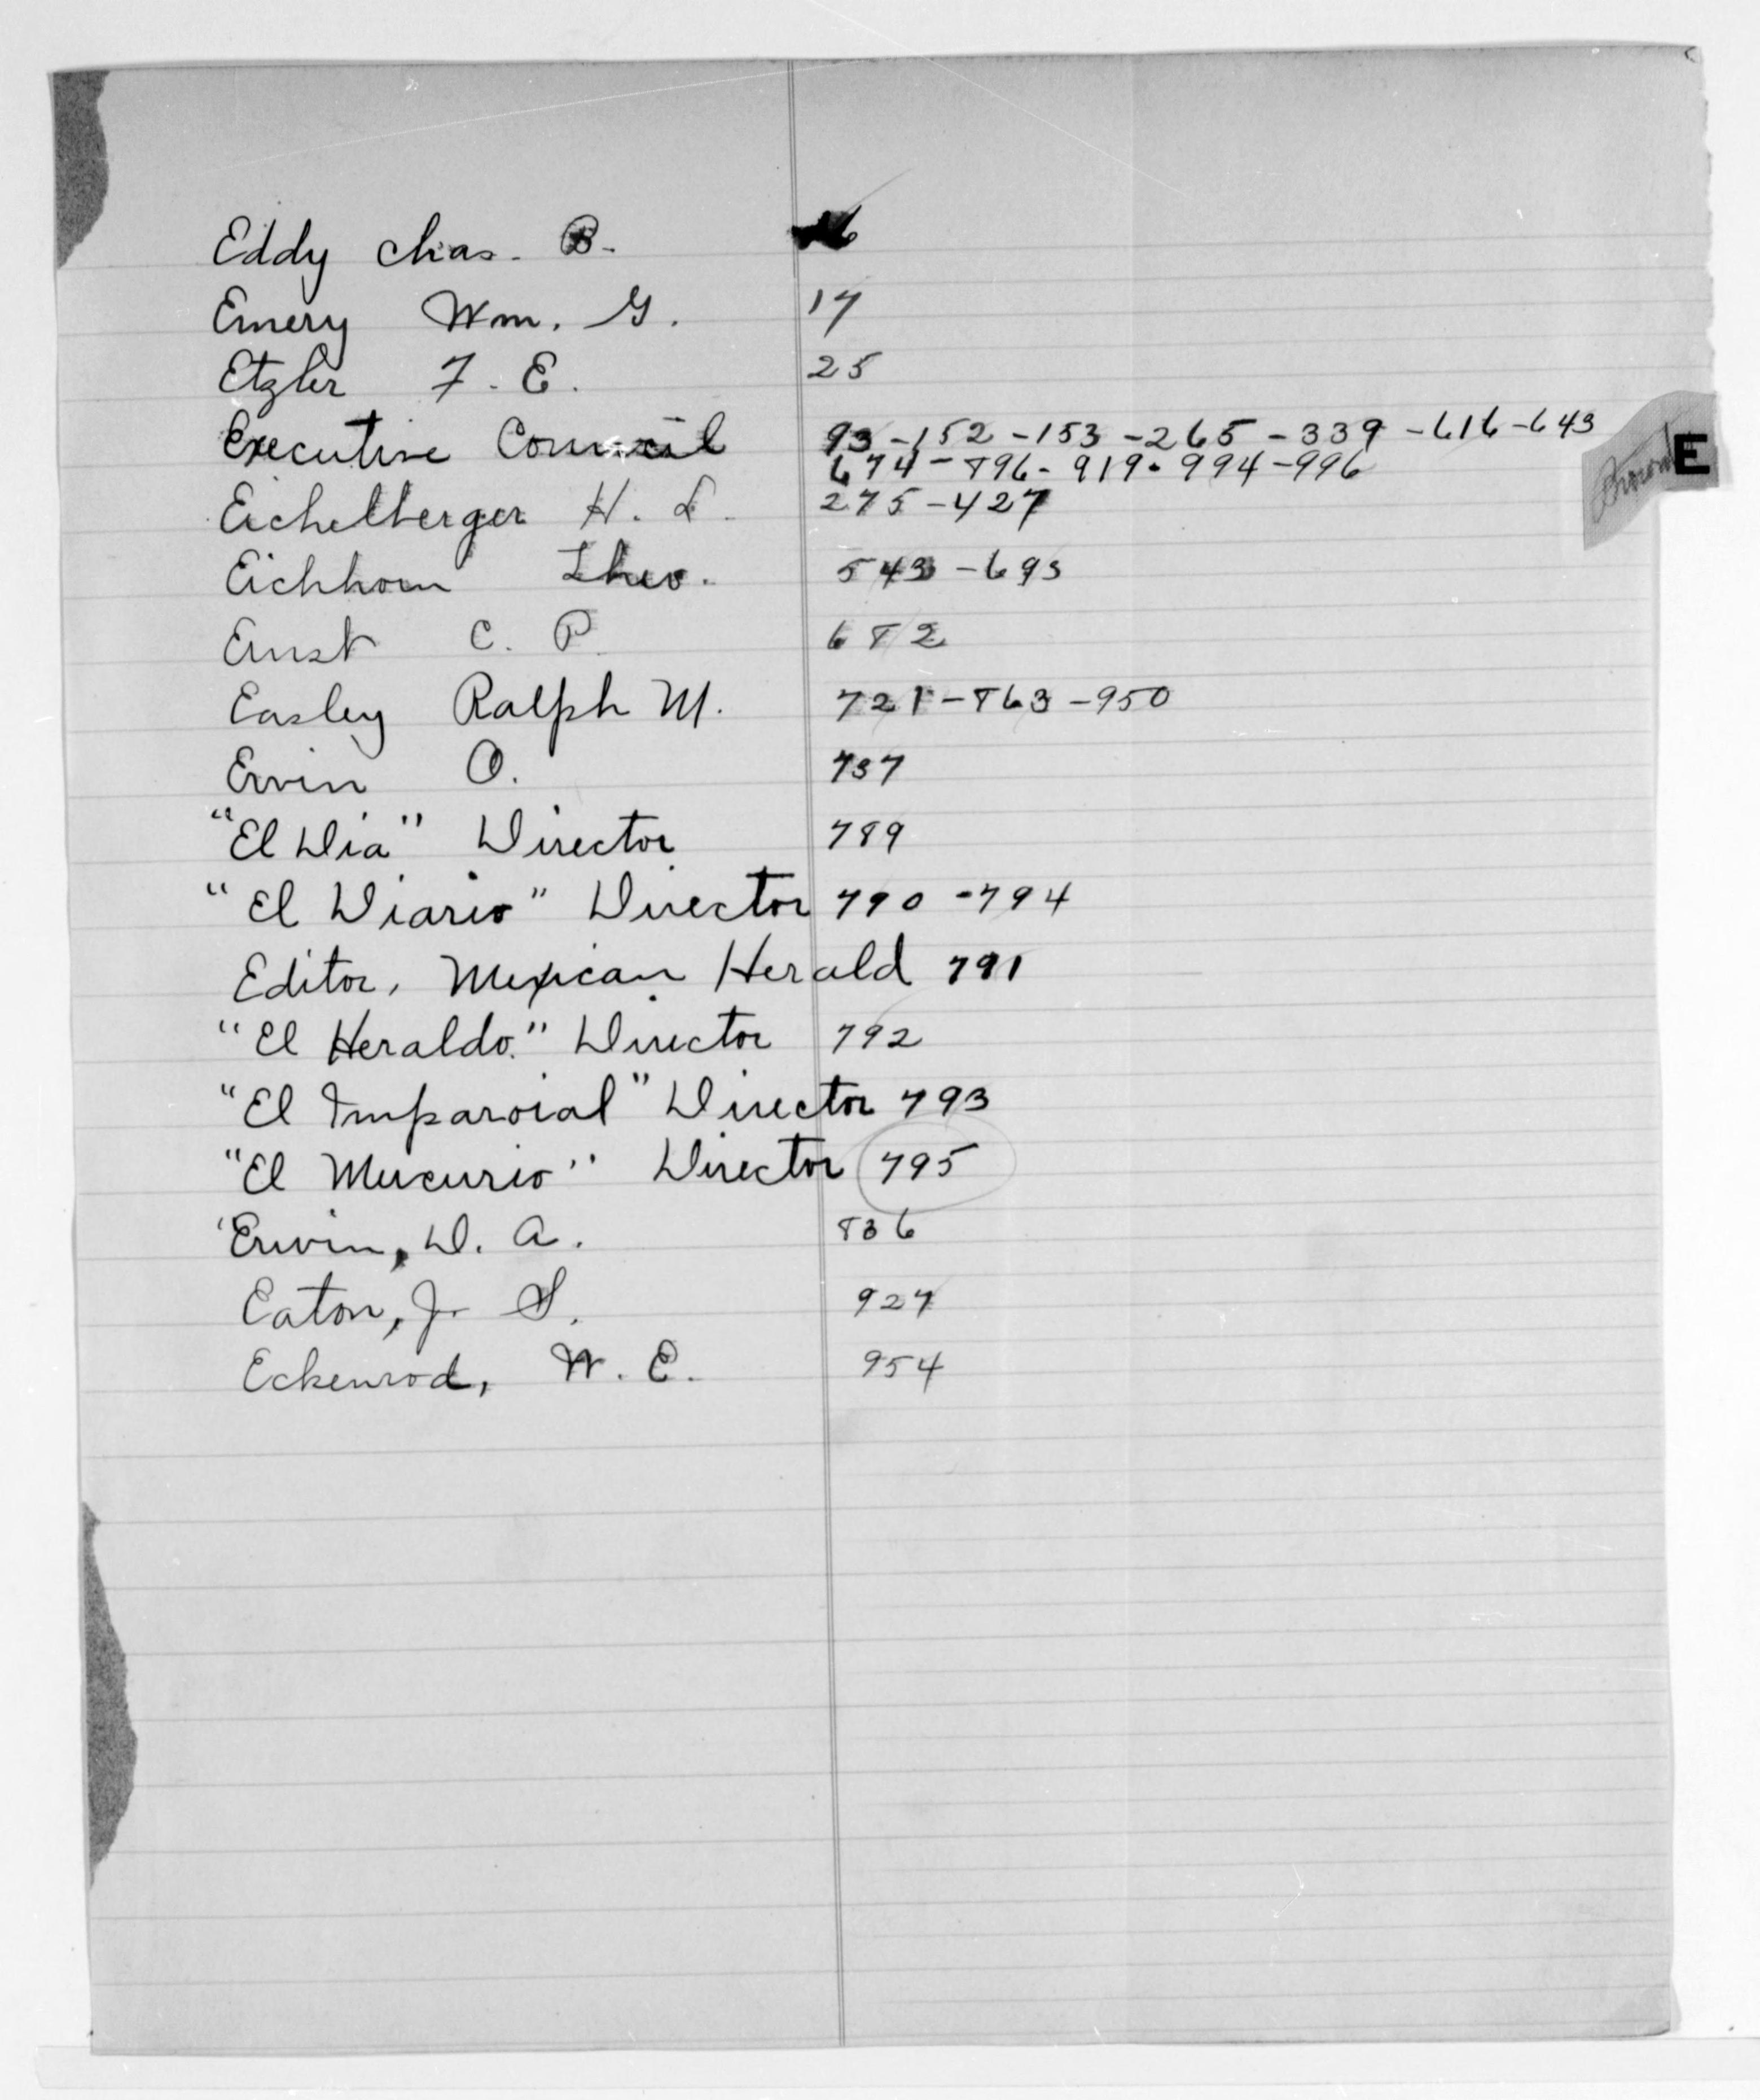 Eddy Chas. B. 16
Emery Wm. G. 17
Etzler F. E. 25
Executive Council 93-152-153-265-339-616-643
674-896-919-994-996
Eichelberger H. L. 275-427
Eichhorn Theo. 543-693
Ernst C. P. 682
Easley Ralph M. 721-863-950
Ervin O. 737
"El Dia" Director 789
"El Diario" Director 790-794
Editor, Mexican Herald 791
"El Heraldo." Director 792
"El Imparcial" Director 793
"El Mercurio" Director 795
Erwin, D. A. 836
Eaton, J. S. 927
Eckenrod, W. E. 954
E